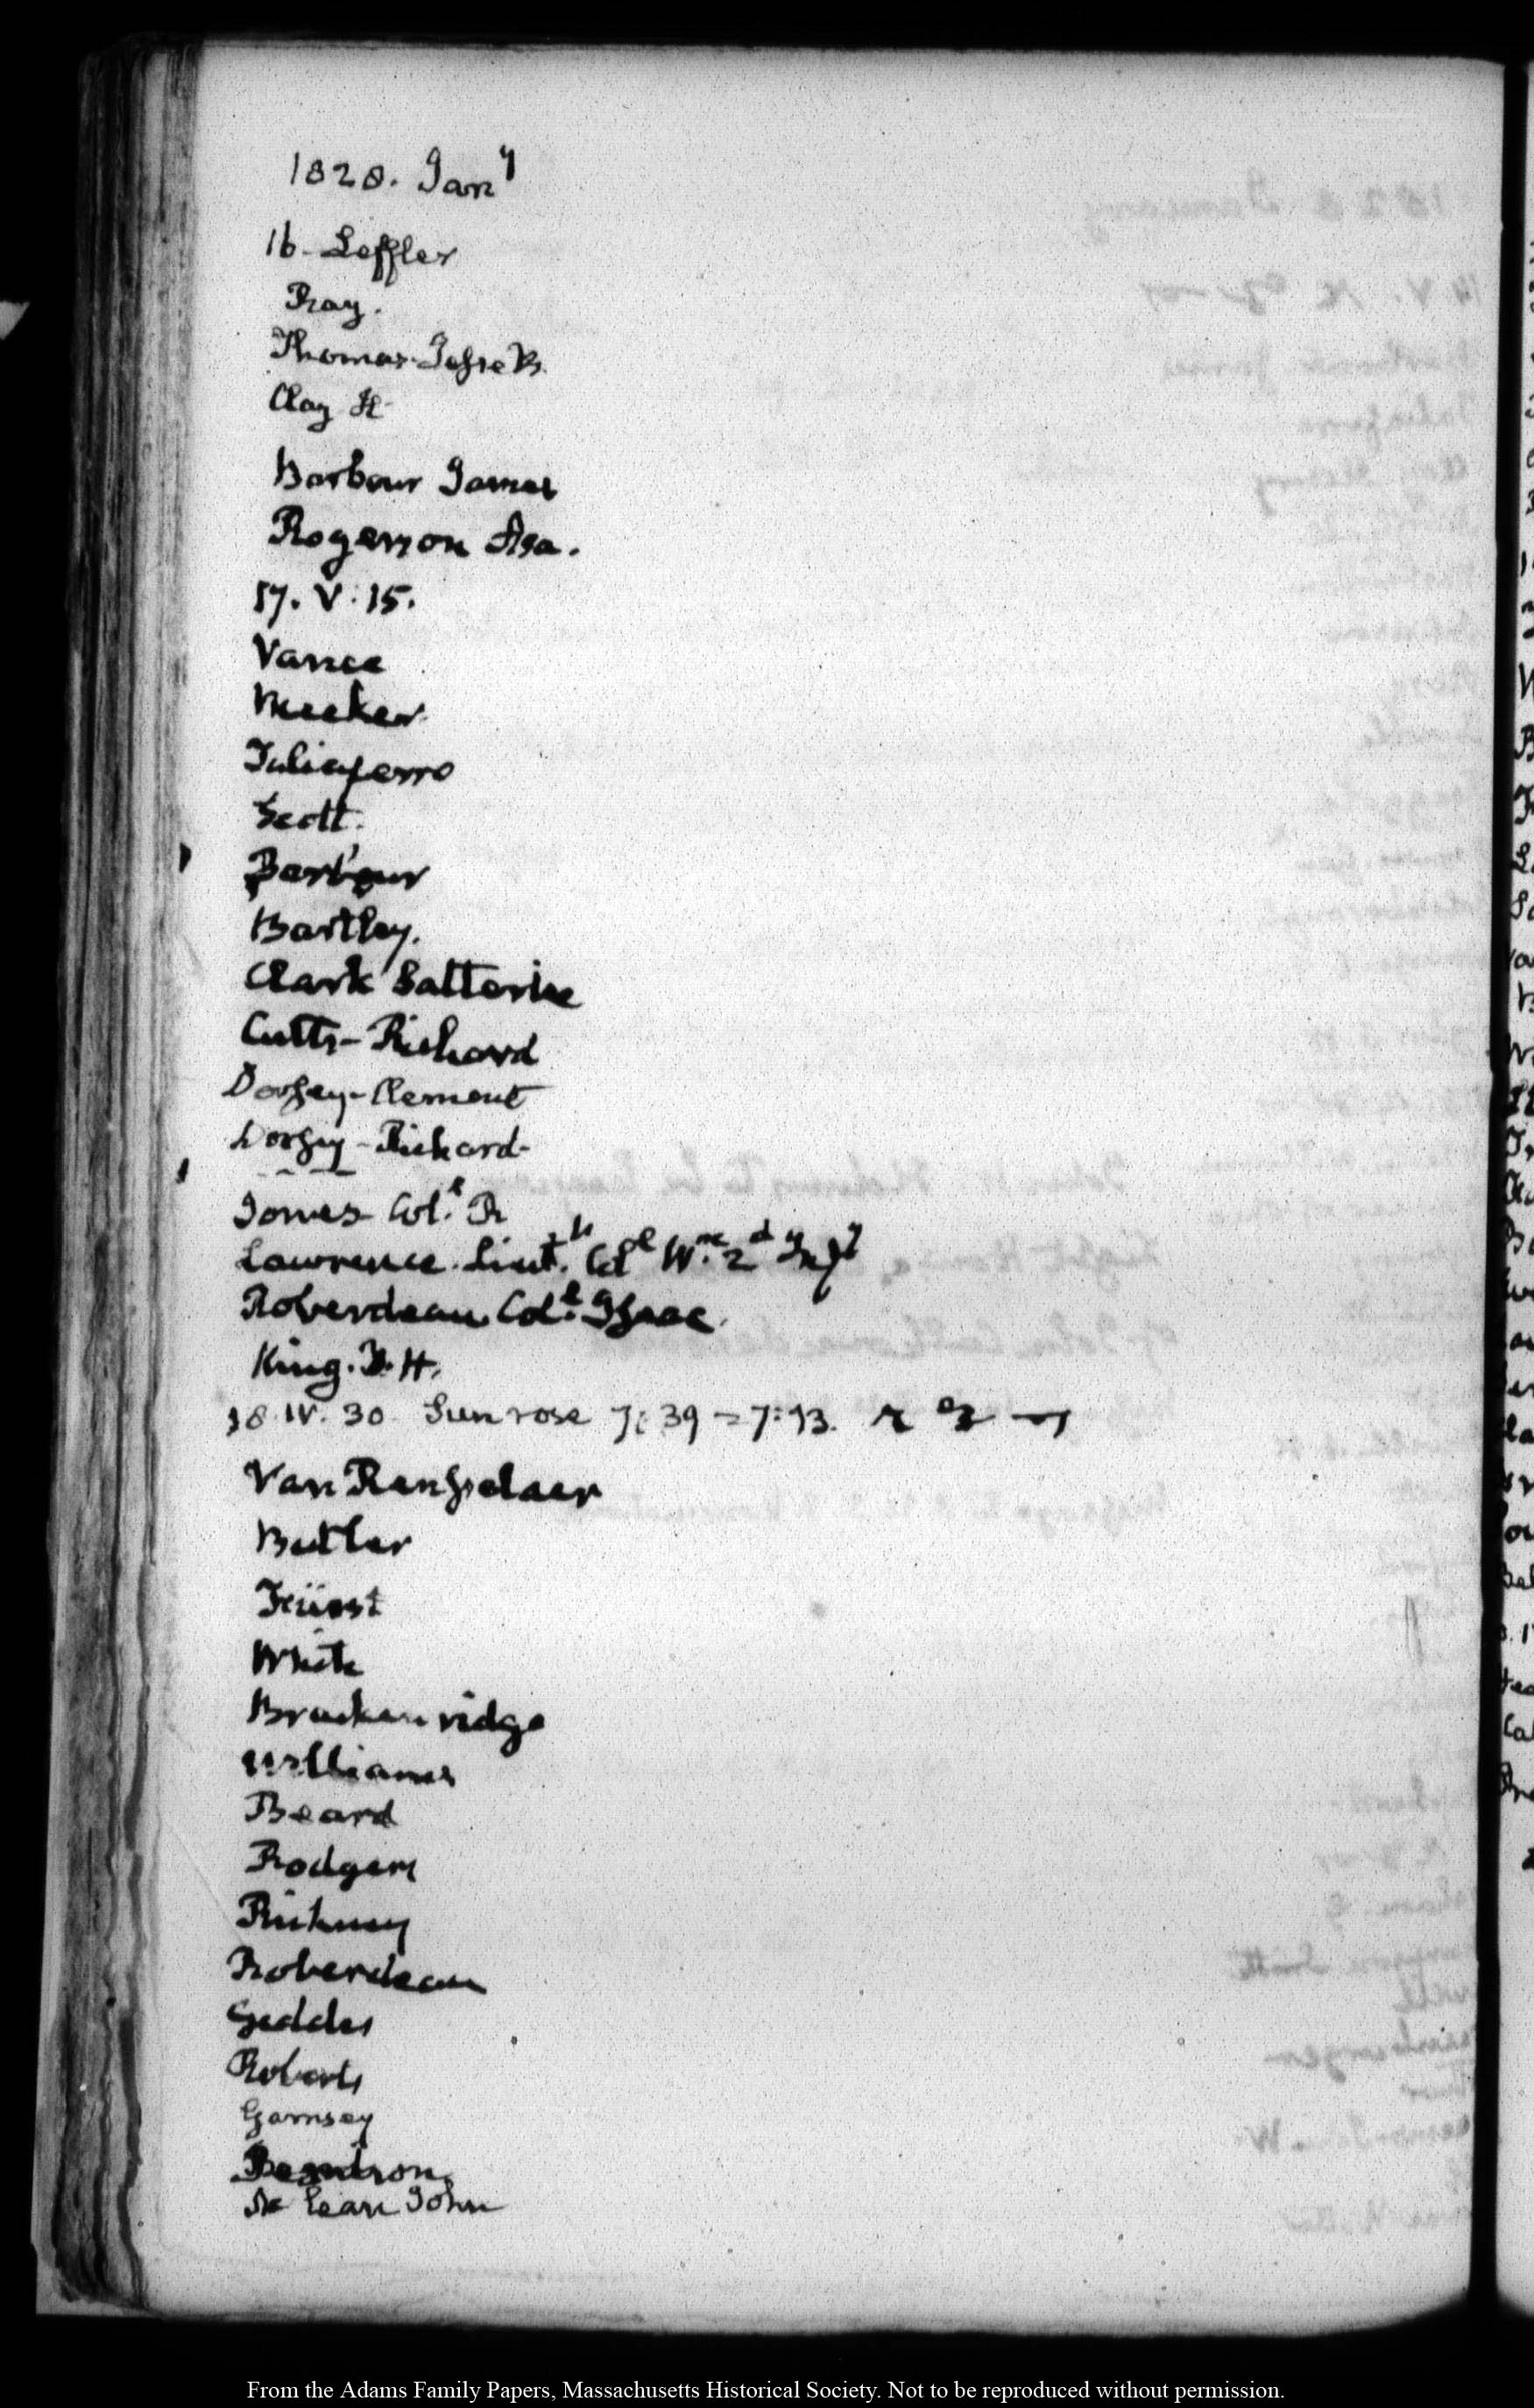 1828. Jan.y
16- Leffler
Ray.
Thomas Jesse B.
Clay H-
Barbour James
Rogerson Asa.
17. V:15.
Vance
Meeker
Taliaferro
Scott.
Barbour
Bartley.
Clark Satterlee
Cutts- Richard
Dorsey- Clement
Dorsey- Richard-
Jones Col.l R
Lawrence. Lieut.t Col.l W.m 2.d Inf.y
Roberdeau Col.l Isaac
King. H.
18. IV. 30. Sun rose 7:39 = 7:13.
Van Rensselaer
Butler
White
Breckenridge
Williams
Beard
Rodgers
Roberdeau
Geddes
Roberts
Garnsey
McLean John
From the Adams Family Papers, Massachusetts Historical Society. Not to be reproduced without permission.